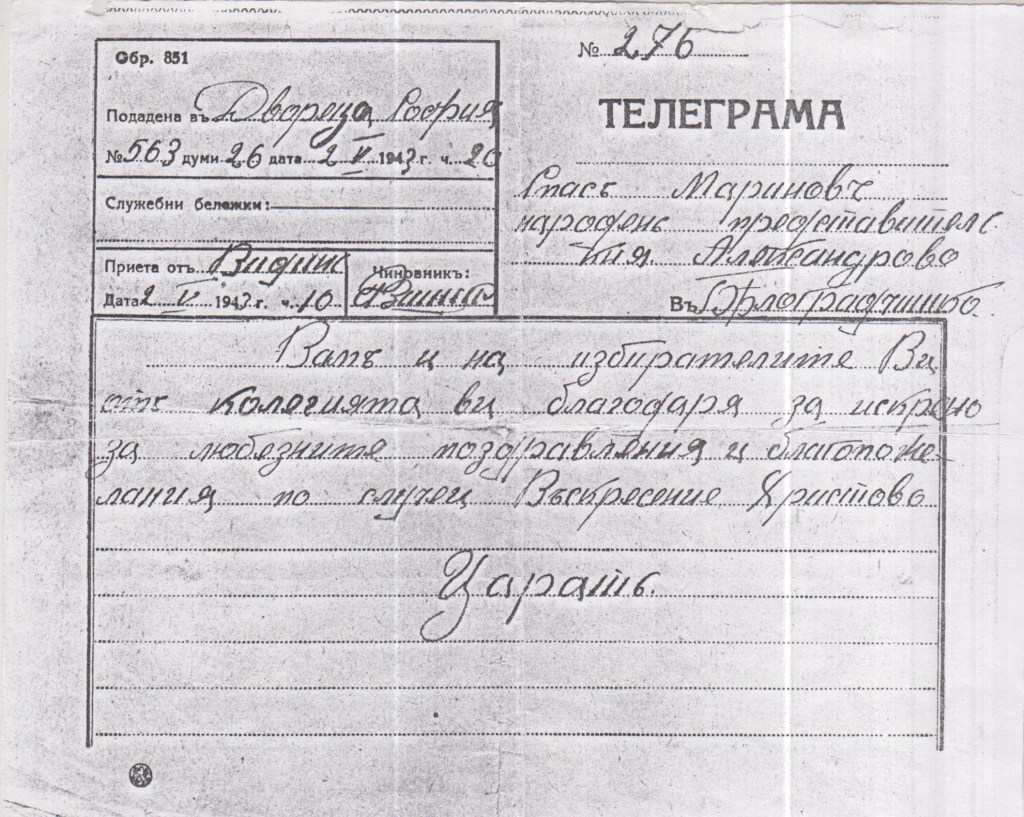 Обр. 851
№ 276
ТЕЛЕГРАМА
Подадена въ Двореца София
№ 563 думи 26 дата 2 V 1943 г. ч. 20
Служебни бележки:
Приета отъ Видинъ
Дата 2 V 1943 г. ч. 10
Чиновникъ:
Спасъ Мариновъ
народенъ представителс.
кия Александрово
Въ
Вапъ и на избирателите Ви
отъ колегията ви благодаря за искрено
за любезните поздравления и благопоже-
лания по случеи Възкресение Христово
Царатъ.